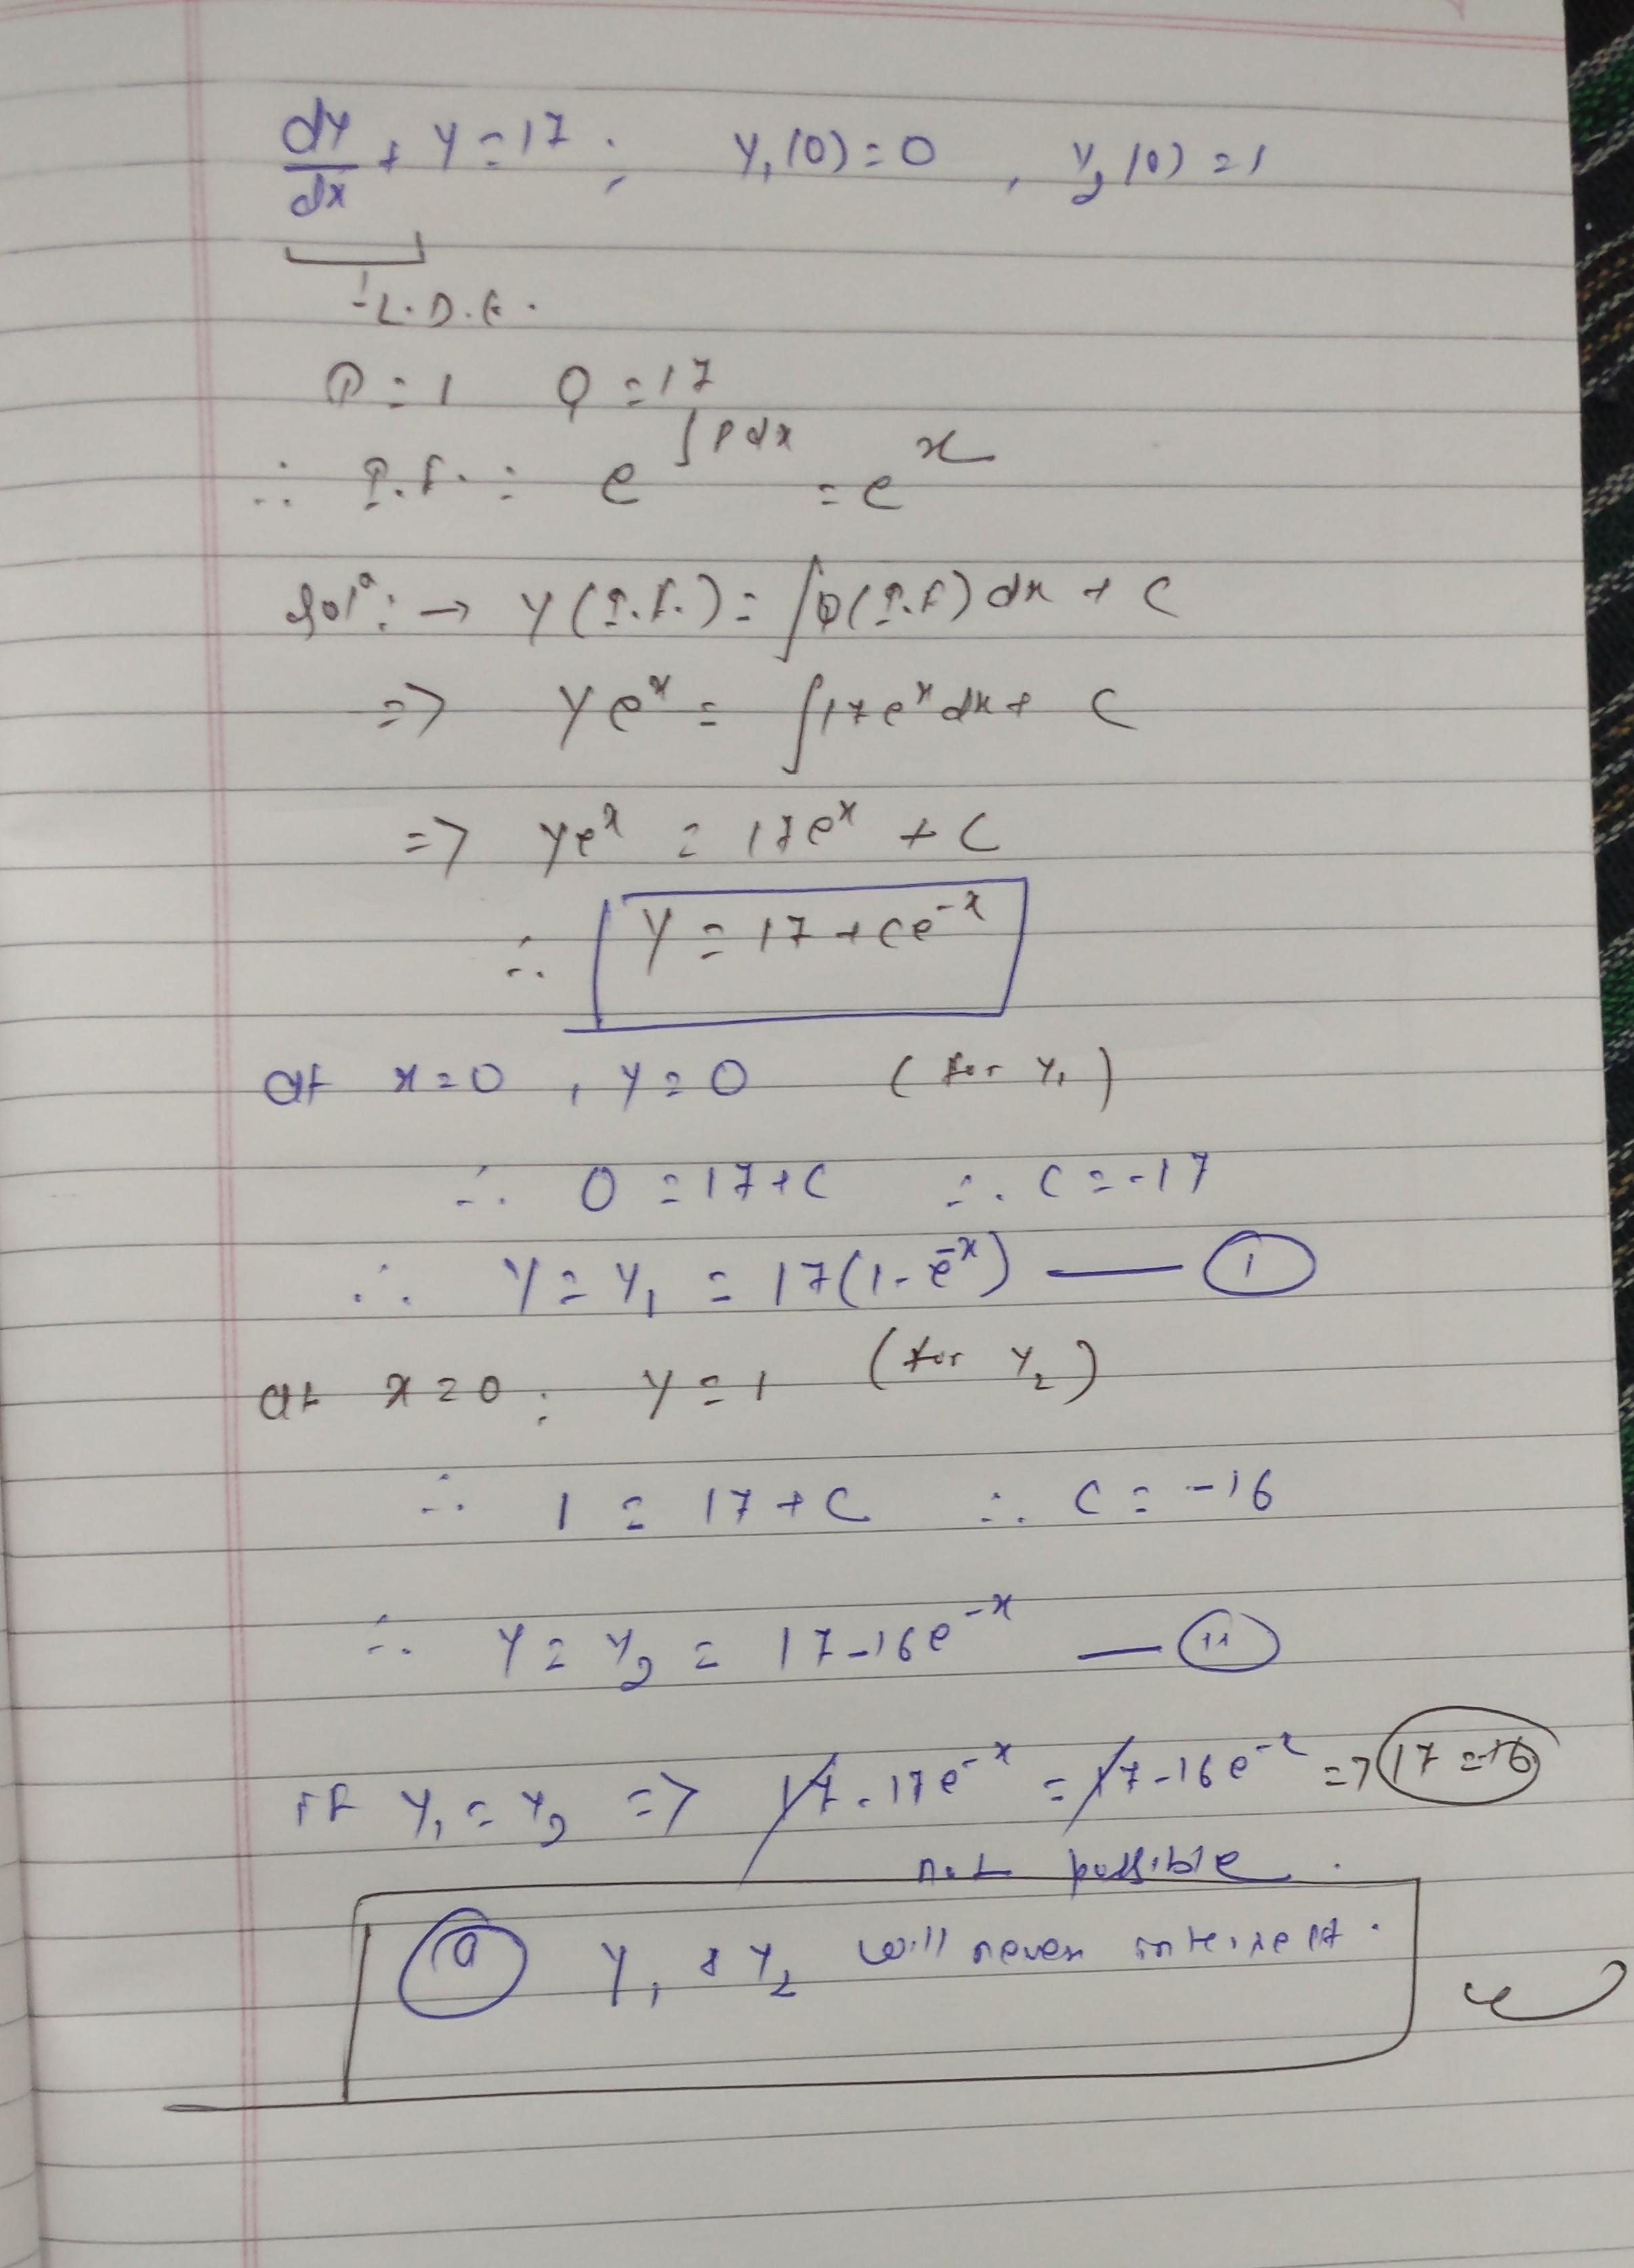 dy/dx + y = 17 ; y₁(0) = 0 , y₂(0) = 1
L.D.E.
P = 1 Q = 17
∴ I.F. = e^∫Pdx = e^x
Solⁿ: → y(I.F.) = ∫Q(I.F)dx + C
=> ye^x = ∫17e^x dx + C
=> ye^x = 17e^x + C
∴ y = 17 + ce^-x
at x = 0 , y = 0 (for y₁)
∴ 0 = 17 + C ∴ C = -17
∴ y = y₁ = 17(1 - e^-x) — (i)
at x = 0 ; y = 1 (for y₂)
∴ 1 = 17 + C ∴ C = -16
∴ y = y₂ = 17 - 16e^-x — (ii)
if y₁ = y₂ => 17 - 17e^-x = 17 - 16e^-x => 17 = 16
not possible.
(a) y₁ & y₂ will never intersect.